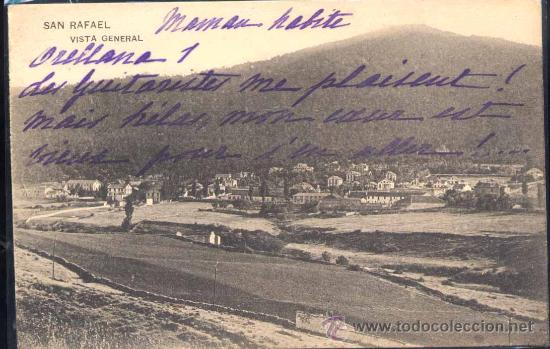 SAN RAFAEL
VISTA GENERAL
Maman habite
Orellana 1
Les Guitaristes me plaisent !
Mais hélas, mon cœur est
vieux pour s'en aller ! ...
www.todocoleccion.net